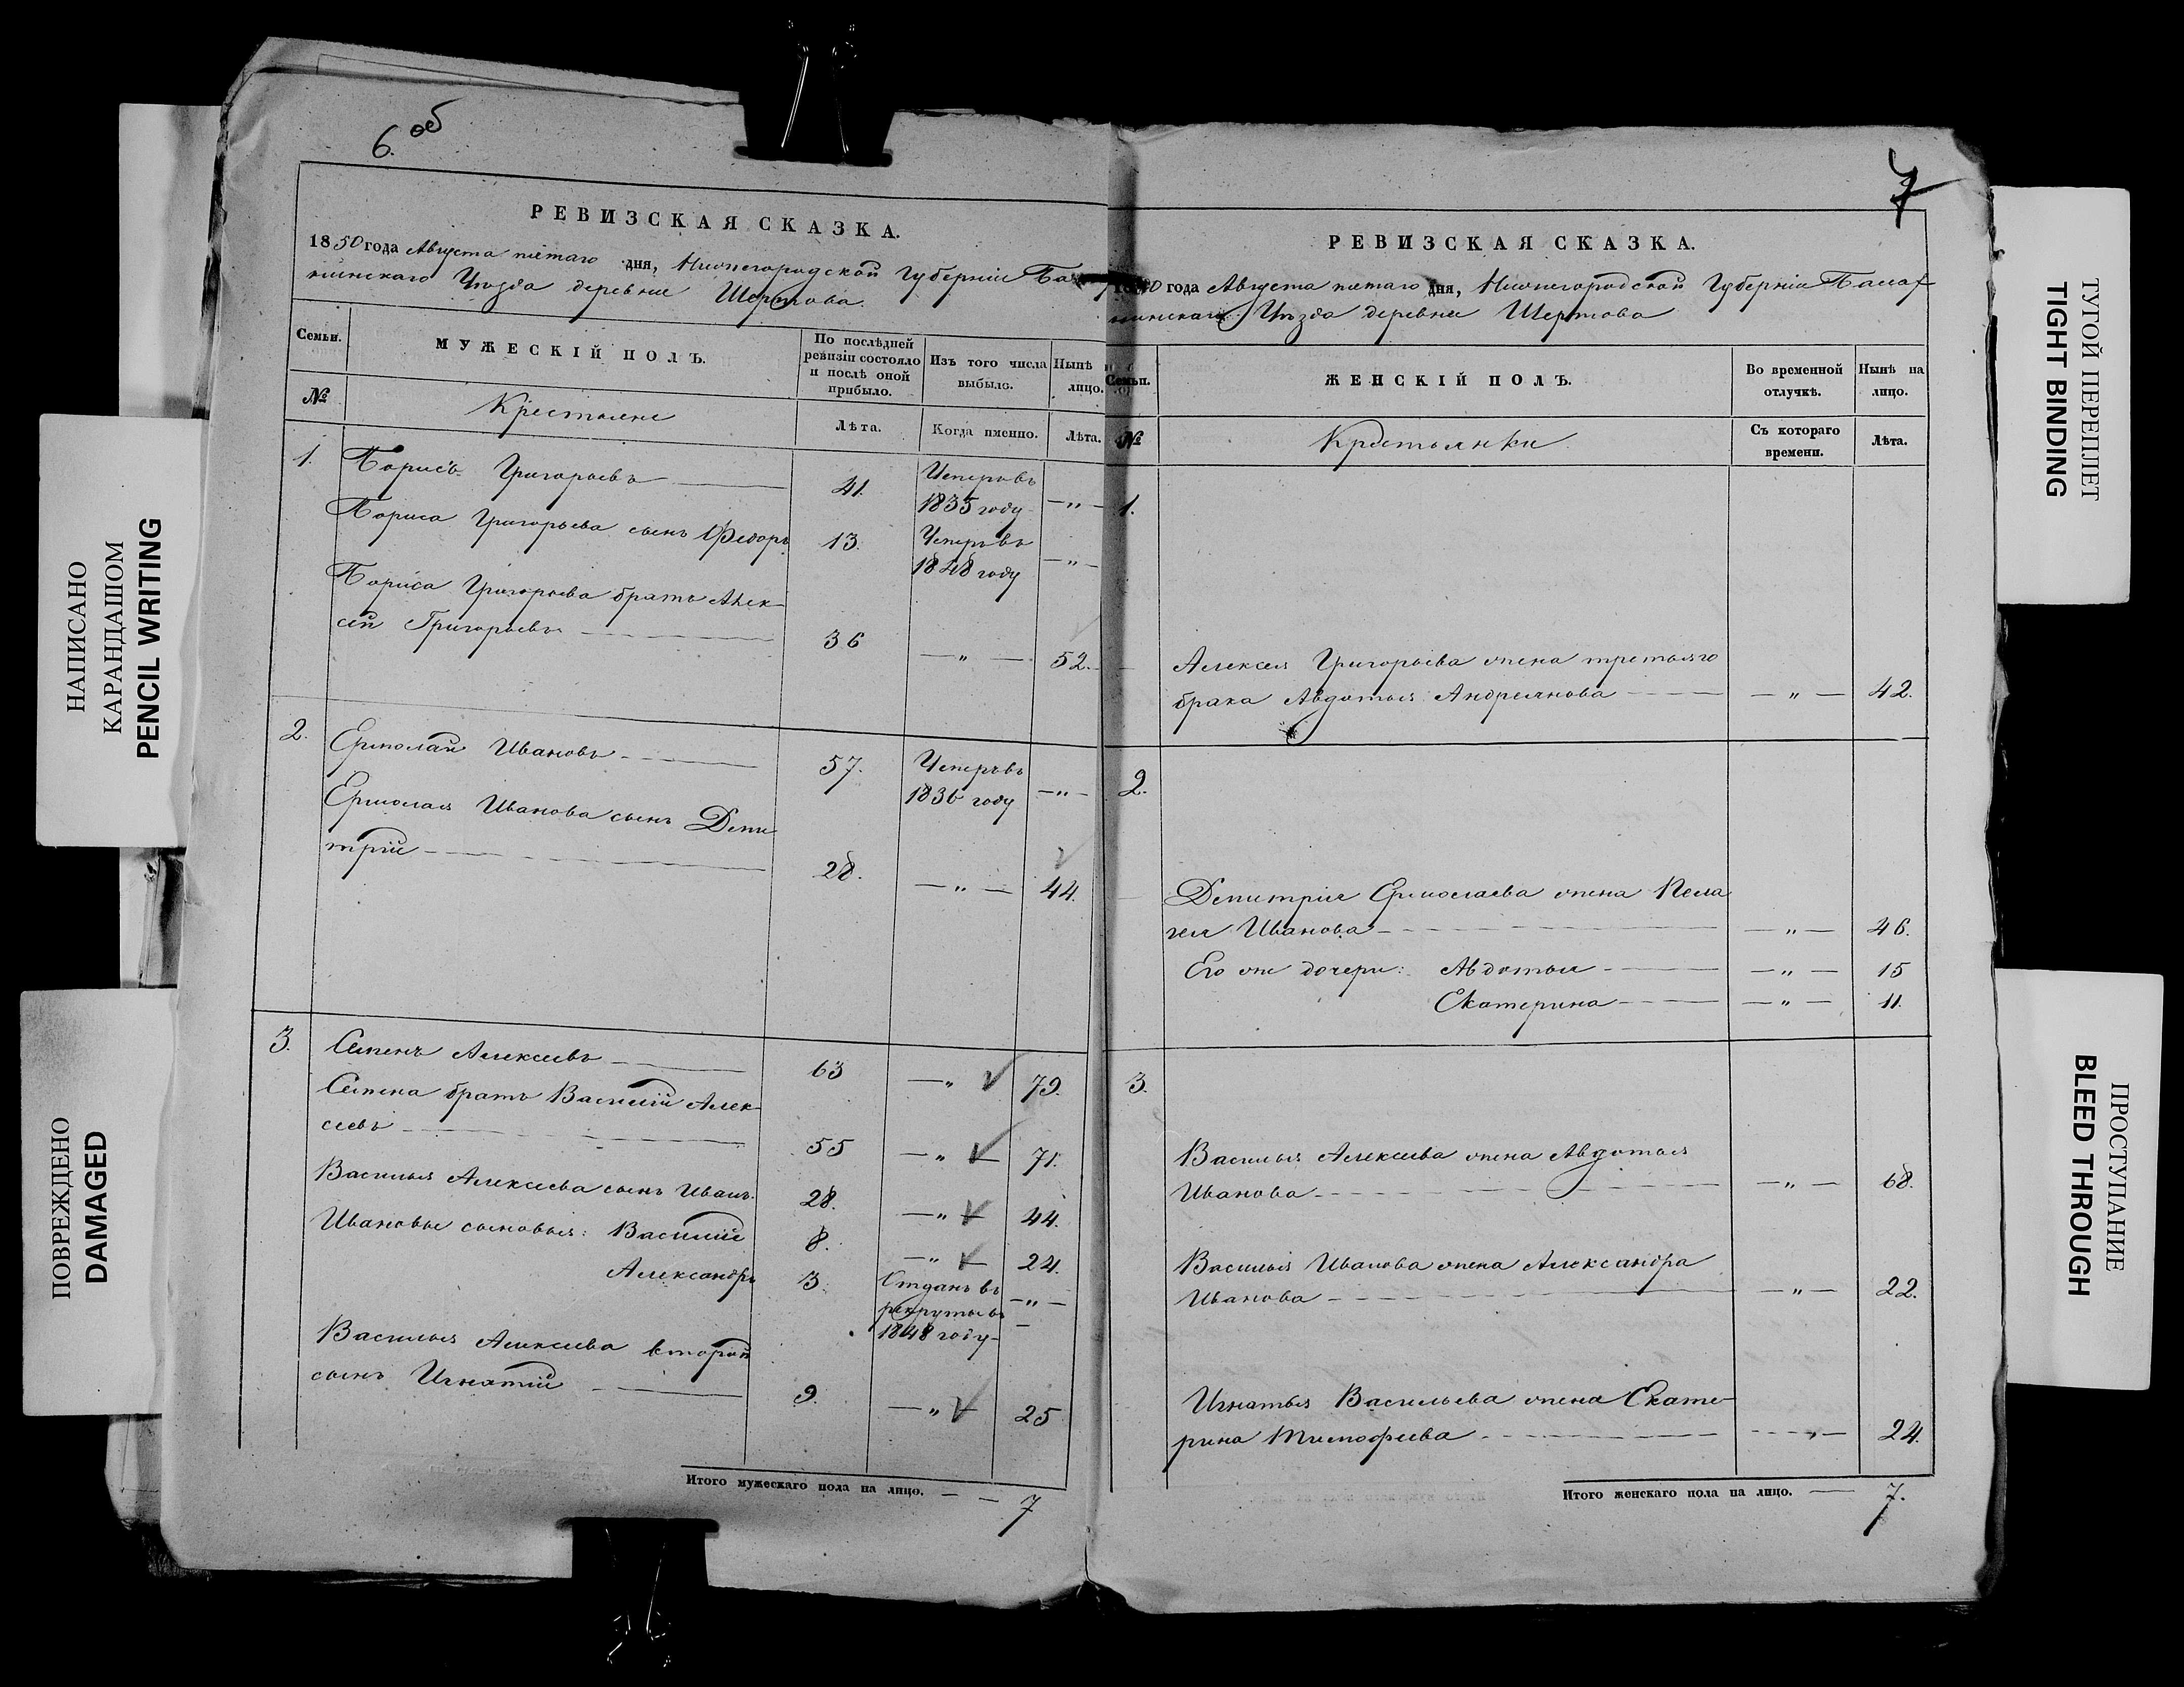 6. об
РЕВИЗСКАЯ СКАЗКА.
1850 года Августа пятаго дня, Нижегородской Губерніи Ба
нинскаго Уезда деревни
Семьи.
МУЖЕСКІЙ ПОЛЪ.
По послѣдней ревизіи состояло и послѣ оной прибыло.
Изъ того числа выбыло.
Нынѣ
лицо.
№
Крестьяне
Лѣта.
Когда именно.
Лѣта.
1. Борисъ Григорьевъ 41. Умеръ въ 1835 году —"—
Бориса Григорьева сынъ Федоръ 13. Умеръ въ 1848 году —"—
Бориса Григорьева братъ Алек-
сей Григорьевъ 36 —"— 52.
2. Ермолай Ивановъ 57. Умеръ въ 1836 году —"—
Ермолая Иванова сынъ Дми
трій 28. —"— 44.
3. Семенъ Алексеевъ 63 —"— 79.
Семена братъ Василій Алек-
сеевъ 55 —"— 71.
Василья Алексеева сынъ Иванъ. 28. —"— 44.
Ивановы сыновья: Василій 8. —"— 24.
Александръ 3. Отданъ въ рекруты въ 1848 году —"—
Василья Алексеева второй
сынъ Игнатій 9. —"— 25
Итого мужескаго пола на лицо. — — 7
7
РЕВИЗСКАЯ СКАЗКА.
1850 года Августа пятаго дня, Нижегородской Губерніи Балах
нинскаго Уезда деревни
Семьи.
ЖЕНСКІЙ ПОЛЪ.
Во временной отлучкѣ.
Нынѣ на лицо.
№
Крестьянки
Съ котораго времени.
Лѣта.
1.
Алексея Григорьева жена третьяго
брака Авдотья Андреянова —"— 42.
2.
Дмитрія Ермолаева жена Пела
гея Иванова —"— 46.
Его же дочери: Авдотья —"— 15
Екатерина —"— 11.
3.
Василья Алексеева жена Авдотья
Иванова —"— 68.
Василья Иванова жена Александра
Иванова —"— 22.
Игнатья Васильева жена Екате-
рина Тимофеева —"— 24.
Итого женскаго пола на лицо. — 7.
НАПИСАНО
КАРАНДАШОМ
PENCIL WRITING
ПОВРЕЖДЕНО
DAMAGED
ТУГОЙ ПЕРЕПЛЕТ
TIGHT BINDING
ПРОСТУПАНИЕ
BLEED THROUGH